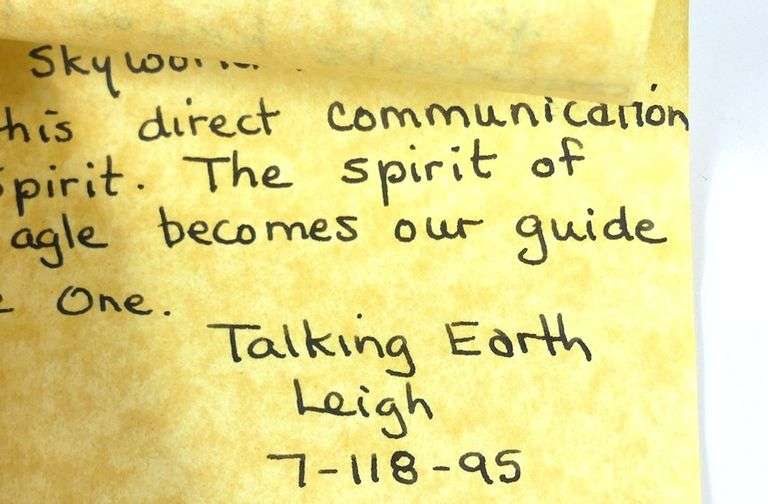 his direct communication
pirit. The spirit of
agle becomes our guide
One.
Talking Earth
Leigh
7-118-95